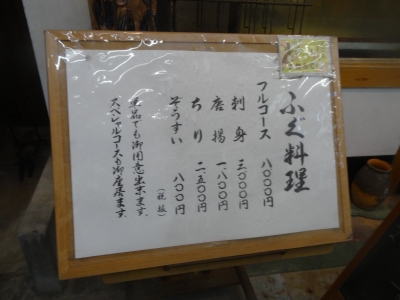 ふぐ料理
フルコース 八〇〇〇円
刺身 三〇〇〇円
唐揚 一八〇〇円
ちり 二五〇〇円
ぞうすい 八〇〇円
(税抜)
単品でも御用意出来ます
スペシャルコースも御座居ます